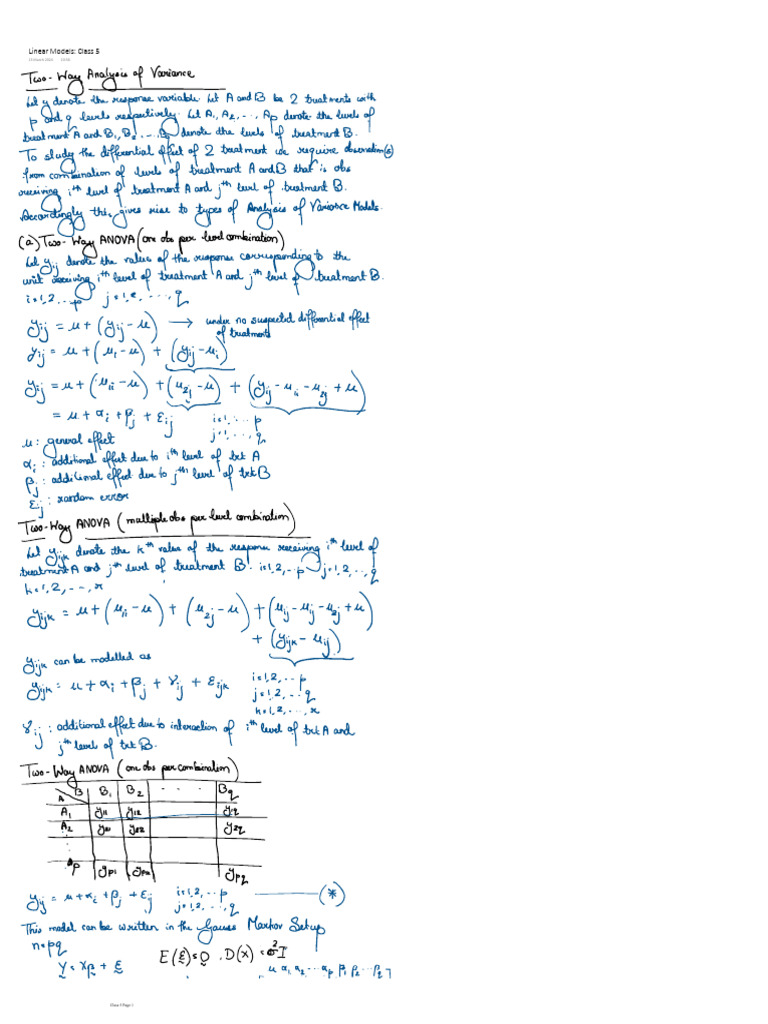 Linear Models: Class 5
Two-Way Analysis of Variance
Let y denote the response variable. Let A and B be 2 treatments with
p and q levels respectively. Let A₁, A₂, ..., Ap denote the levels of
treatment A and B₁, B₂, ..., Bq denote the levels of treatment B.
To study the differential effect of 2 treatment we require observation(s)
from combination of levels of treatment A and B that is obs
receiving iᵗʰ level of treatment A and jᵗʰ level of treatment B.
Accordingly this, gives rise to types of Analysis of Variance Models.
(a) Two-Way ANOVA (one obs per level combination)
Let yij denote the value of the response corresponding to the
unit receiving iᵗʰ level of treatment A and jᵗʰ level of treatment B.
i=1,2,...p j=1,2,....,q
yij = μ + (yij - μ) → under no suspected differential effect
of treatments
yij = μ + (μi - μ) + (yij - μi)
yij = μ + (μ1i - μ) + (μ2j - μ) + (yij - μ1i - μ2j + μ)
= μ + αi + βj + εij i=1,...p
j=1,...,q
μ: general effect
αi: additional effect due to iᵗʰ level of trt A
βj: additional effect due to jᵗʰ level of trt B
εij: random error
Two-Way ANOVA (multiple obs per level combination)
Let yijk denote the kᵗʰ value of the response receiving iᵗʰ level of
treatment A and jᵗʰ level of treatment B. i=1,2,..p j=1,2,..,q
k=1,2,...,r
yijk = μ + (μ1i - μ) + (μ2j - μ) + (μij - μ1j - μ2j + μ)
+ (yijk - μij)
yijk can be modelled as
yijk = μ + αi + βj + γij + εijk i=1,2,..p
j=1,2,..q
k=1,2,...,r
γij: additional effect due to interaction of iᵗʰ level of trt A and
jᵗʰ level of trt B.
Two-Way ANOVA (one obs per combination)
A B B₁ B₂ ... Bq
A₁ y11 y12 y1q
A₂ y21 y22 y2q
Ap yp1 yp2 ypq
yij = μ + αi + βj + εij i=1,2,..p
j=1,2,..,q (*)
This model can be written in the Gauss Markov Setup
n=pq
E(ε)=0, D(x)=σ²I
Y = Xβ + ε
μ α₁ α₂ ... αp β₁ β₂ ... βq